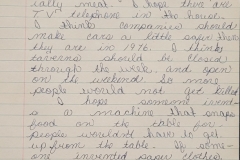 ially meat. I hope there are
"T V" telephone in the house.
I think companies should
make cars a little safer than
they are in 1976. I think
taverns should be closed
through the week, and open
on the weekend. So more
people would not get killed
I hope someone invent-
s a machine that snaps
food on the table for
people wouldn't have to get
up from the table. If some-
one invented paper clothes,